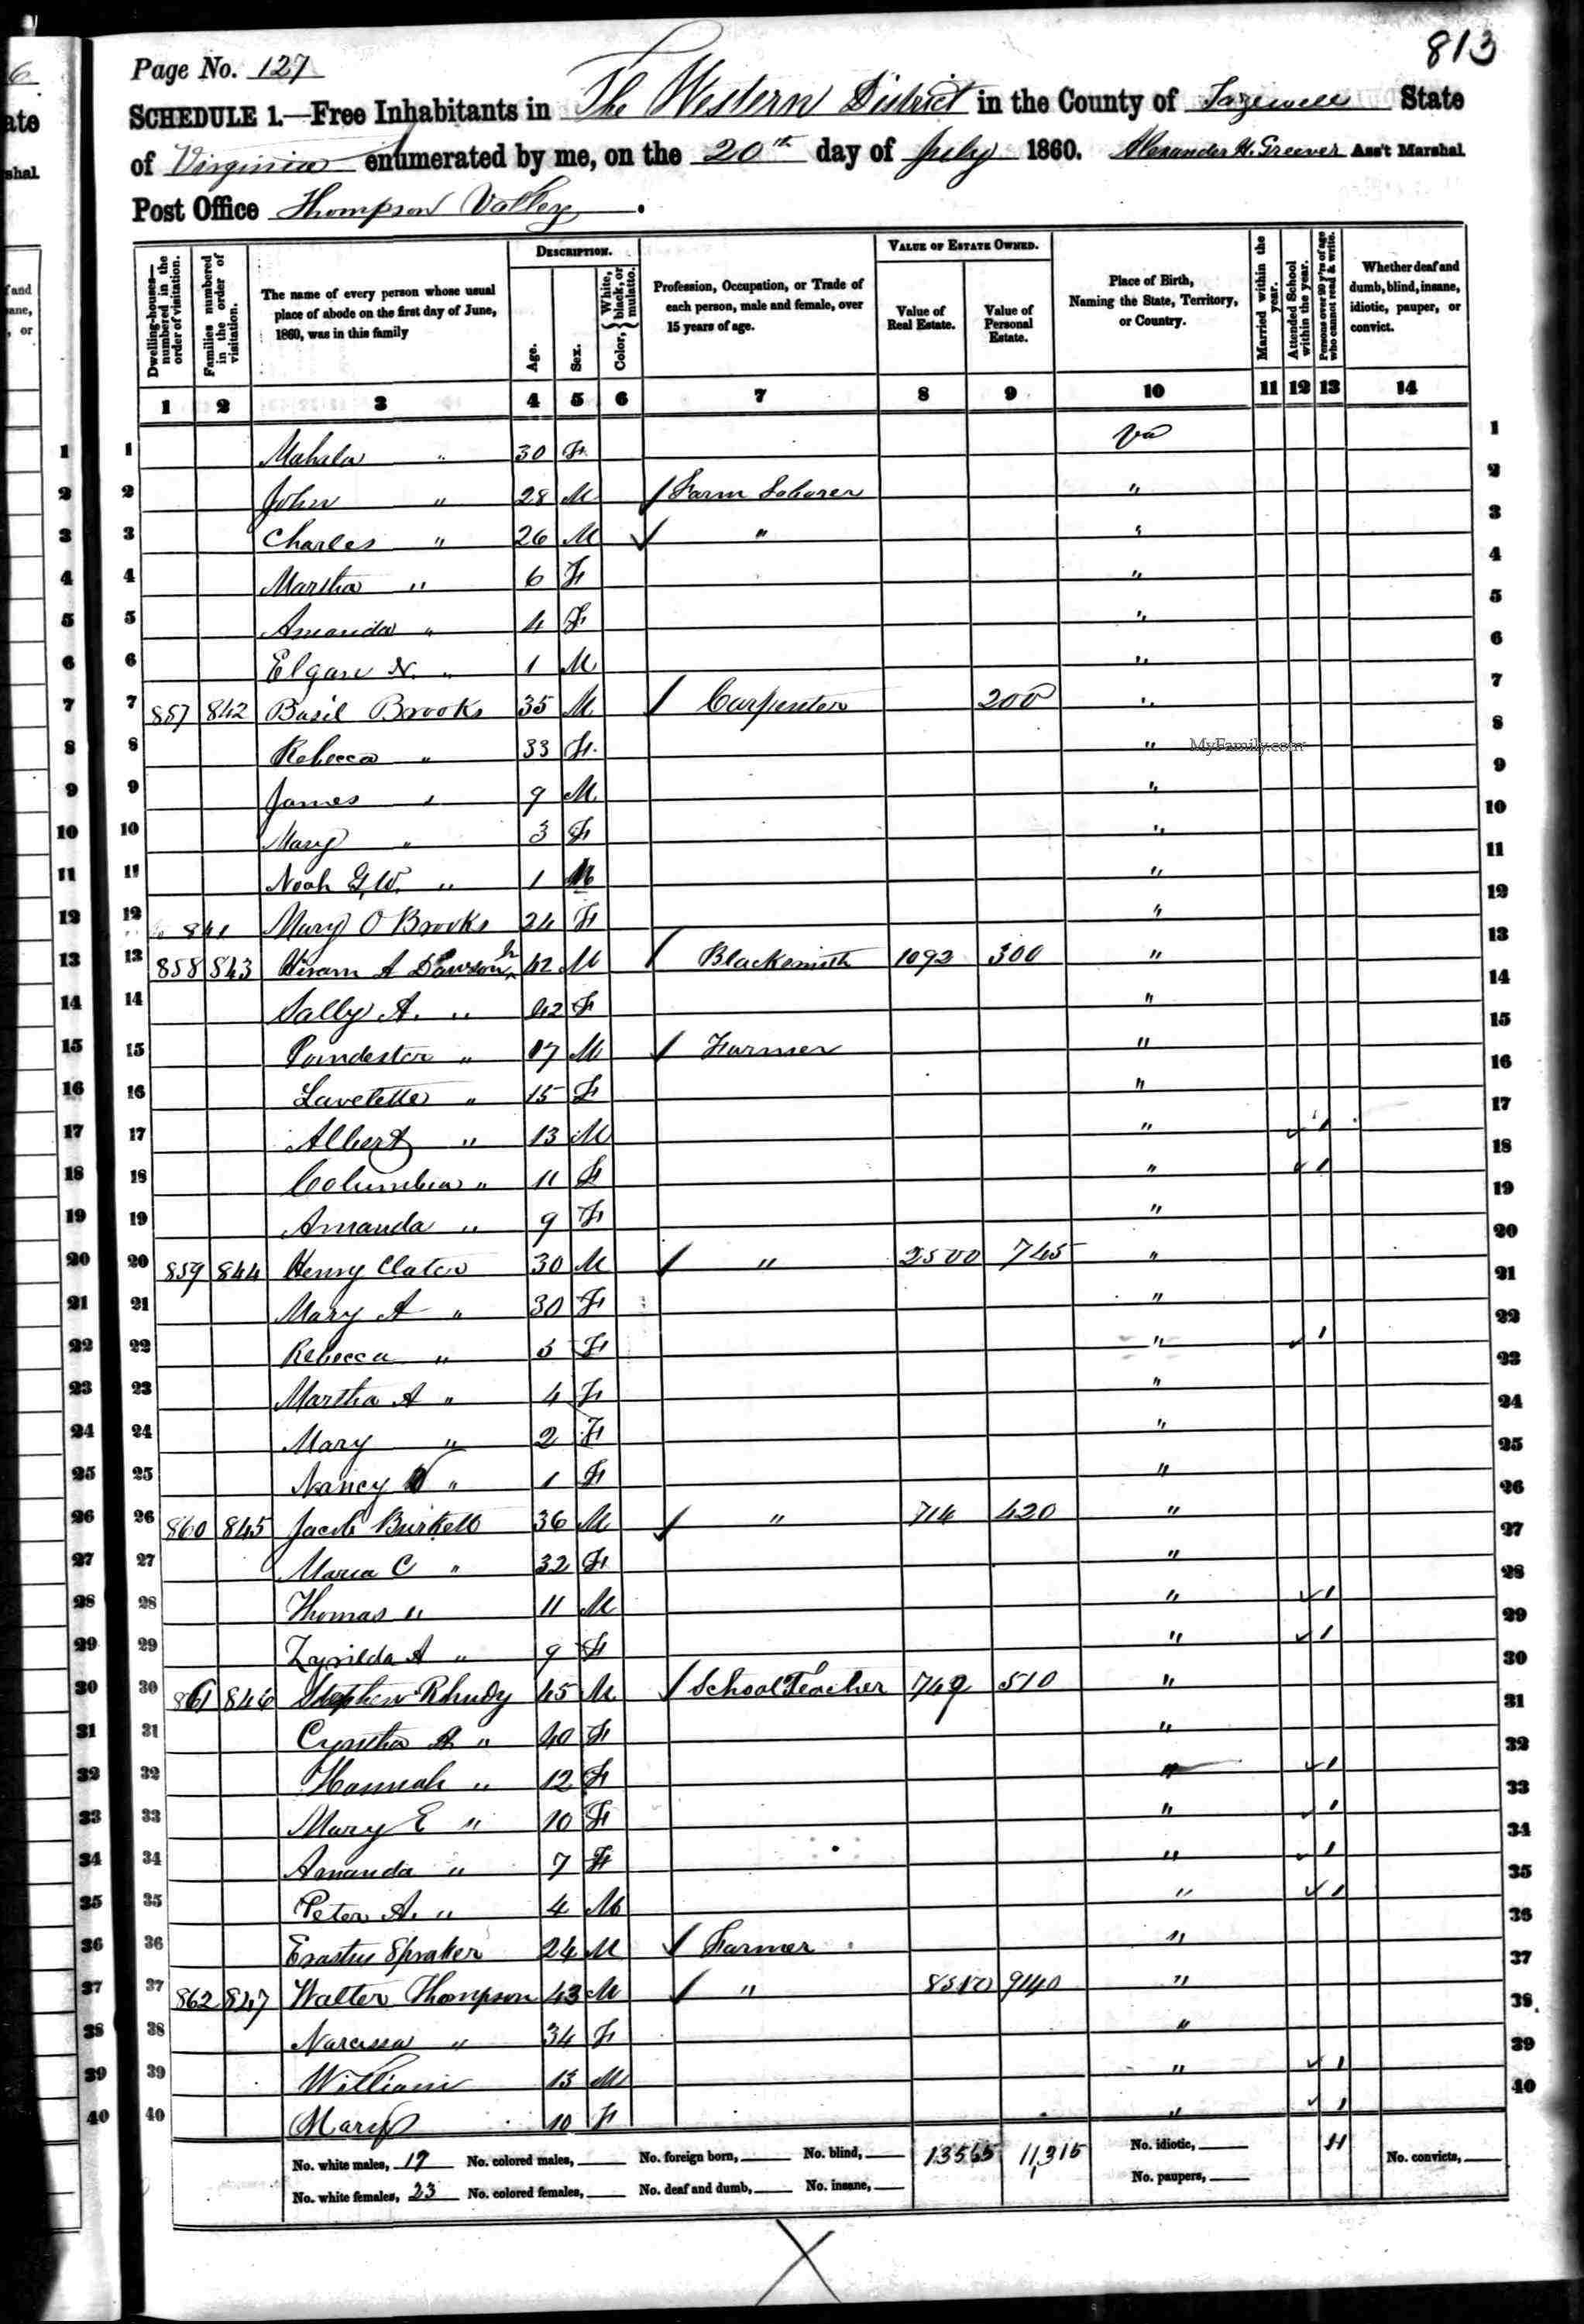 813
Page No. 127
SCHEDULE 1.—Free Inhabitants in The Western District in the County of Tazewell State
of Virginia enumerated by me, on the 20th day of July 1860. Alexander H. Greever Ass't Marshal
Post Office Thompson Valley.
DESCRIPTION. VALUE OF ESTATE OWNED.
Dwelling-houses—numbered in the order of visitation.
Families numbered in the order of visitation.
The name of every person whose usual place of abode on the first day of June, 1860, was in this family
Age.
Sex.
Color, { White, black, or mulatto.
Profession, Occupation, or Trade of each person, male and female, over 15 years of age.
Value of Real Estate.
Value of Personal Estate.
Place of Birth, Naming the State, Territory, or Country.
Married within the year.
Attended School within the year.
Persons over 20 y'rs of age who cannot read & write.
Whether deaf and dumb, blind, insane, idiotic, pauper, or convict.
1 2 3 4 5 6 7 8 9 10 11 12 13 14
1 Mahala " 30 F Va 1
2 John " 28 M / Farm Laborer " 2
3 Charles " 26 M / " " 3
4 Martha " 6 F " 4
5 Amanda " 4 F " 5
6 N. " 1 M " 6
7 857 842 Basil Brooks 35 M / Carpenter 200 " 7
8 Rebecca " 33 F " 8
MyFamily.com
9 James " 9 M " 9
10 Mary " 3 F " 10
11 Noah G.W. " 1 M " 11
12 841 Mary O Brooks 24 F " 12
13 858 843 Hiram A Dawson 42 M / Blacksmith 1092 300 " 13
14 Sally A. " 42 F " 14
15 Poindexter " 17 M / Farmer " 15
16 Lavelette " 15 F " 16
17 Albert " 13 M " ✓ 1 17
18 Columbia " 11 F " ✓ 1 18
19 Amanda " 9 F " 19
20 859 844 Henry Clator 30 M / " 2500 745 " 20
21 Mary A " 30 F " 21
22 Rebecca " 5 F " ✓ 1 22
23 Martha A " 4 F " 23
24 Mary " 2 F " 24
25 Nancy " 1 F " 25
26 860 845 Jacob Burkett 36 M / " 714 420 " 26
27 Maria C " 32 F " 27
28 Thomas " 11 M " ✓ 1 28
29 Zyrilda A " 9 F " ✓ 1 29
30 861 846 Stephen Rhudy 45 M / School Teacher 749 510 " 30
31 Cyntha " 40 F " 31
32 Hannah " 12 F " ✓ 1 32
33 Mary E " 10 F " ✓ 1 33
34 Amanda " 7 F " ✓ 1 34
35 Peter A. " 4 M " ✓ 1 35
36 Erastus Spraker 24 M / Farmer " 36
37 862 847 Walter Thompson 43 M / " 8510 9140 " 37
38 Narcissa " 34 F " 38
39 William 13 M " ✓ 1 39
40 Mary 10 F " ✓ 1 40
No. white males, 17 No. colored males, No. foreign born, No. blind, 13565 11,315 No. idiotic, 11 No. convicts,
No. white females, 23 No. colored females, No. deaf and dumb, No. insane, No. paupers,